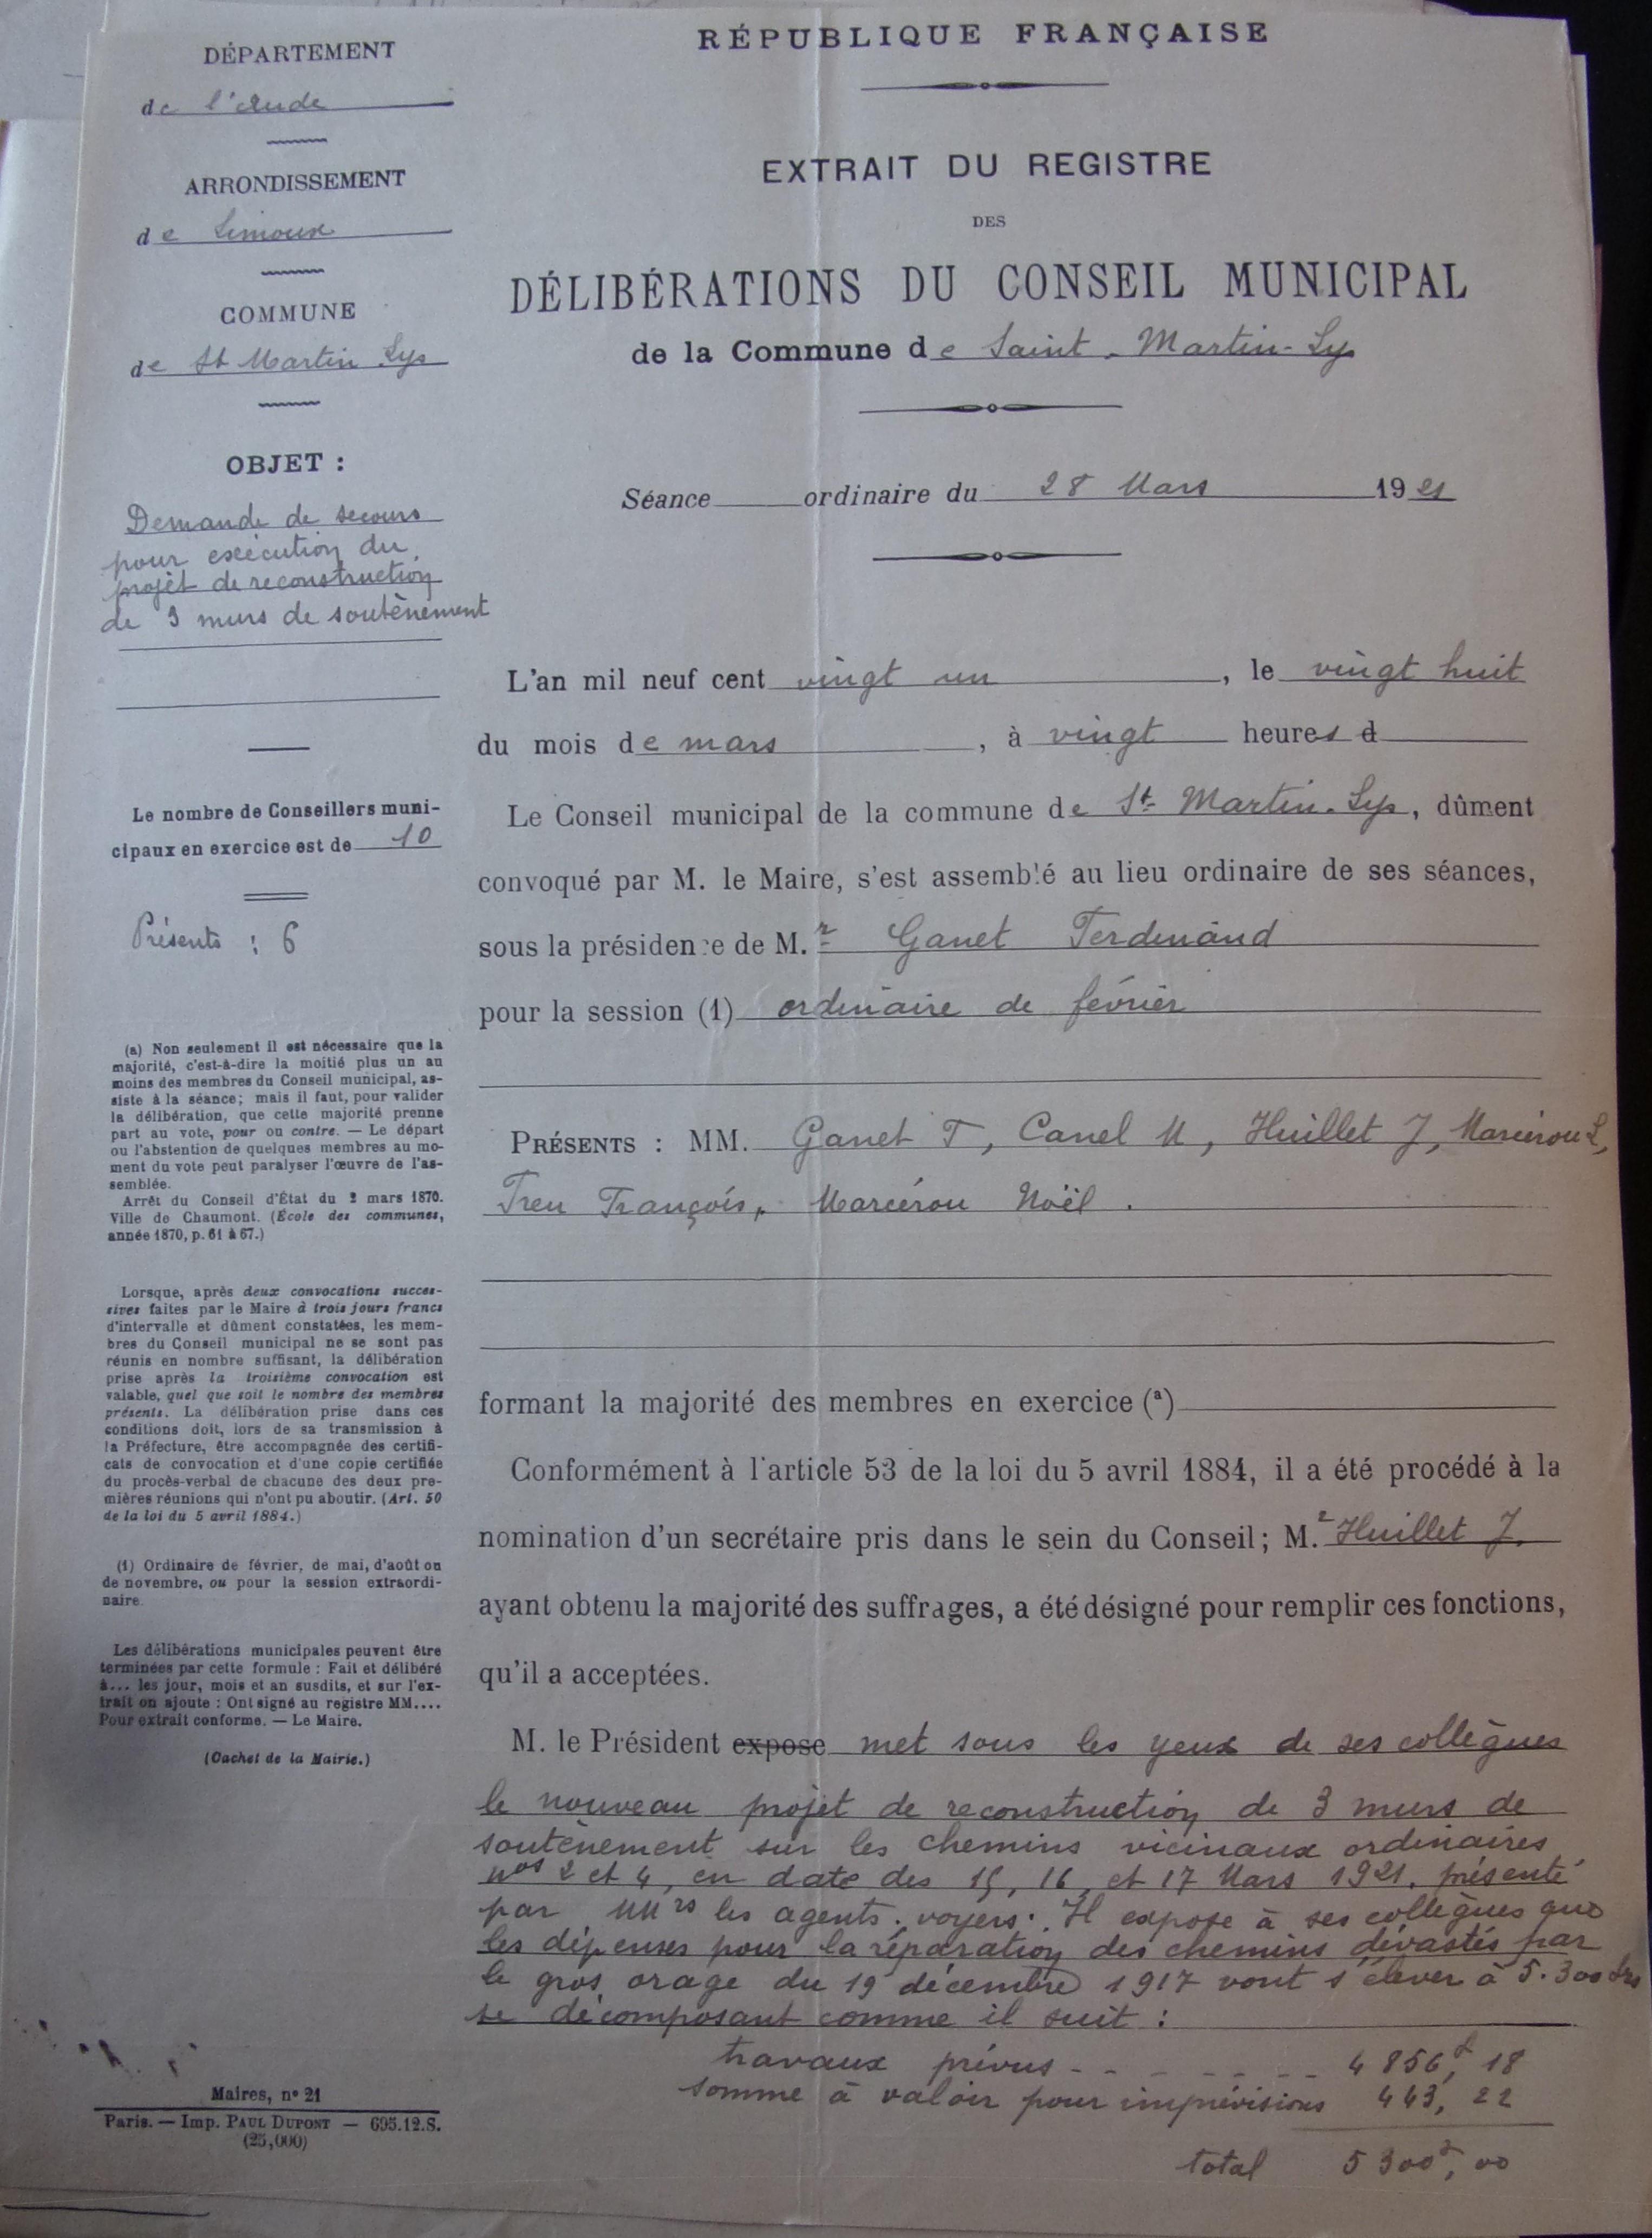 DÉPARTEMENT
de l'Aude
ARRONDISSEMENT
de Limoux
COMMUNE
de St Martin Lys
OBJET :
Demande de secours
pour exécution du
projet de reconstruction
de 3 murs de soutènement
Le nombre de Conseillers muni-
cipaux en exercice est de 10
Présents : 6
(a) Non seulement il est nécessaire que la
majorité, c'est-à-dire la moitié plus un au
moins des membres du Conseil municipal, as-
siste à la séance; mais il faut, pour valider
la délibération, que cette majorité prenne
part au vote, pour ou contre. — Le départ
ou l'abstention de quelques membres au mo-
ment du vote peut paralyser l'œuvre de l'as-
semblée.
Arrêt du Conseil d'État du 2 mars 1870.
Ville de Chaumont. (École des communes,
année 1870, p. 61 à 67.)
Lorsque, après deux convocations succes-
sives faites par le Maire à trois jours francs
d'intervalle et dûment constatées, les mem-
bres du Conseil municipal ne se sont pas
réunis en nombre suffisant, la délibération
prise après la troisième convocation est
valable, quel que soit le nombre des membres
présents. La délibération prise dans ces
conditions doit, lors de sa transmission à
la Préfecture, être accompagnée des certifi-
cats de convocation et d'une copie certifiée
du procès-verbal de chacune des deux pre-
mières réunions qui n'ont pu aboutir. (Art. 50
de la loi du 5 avril 1884.)
(1) Ordinaire de février, de mai, d'août ou
de novembre, ou pour la session extraordi-
naire.
Les délibérations municipales peuvent être
terminées par cette formule : Fait et délibéré
à... les jour, mois et an susdits, et sur l'ex-
trait on ajoute : Ont signé au registre MM....
Pour extrait conforme. — Le Maire.
(Cachet de la Mairie.)
Maires, n° 21
Paris. — Imp. PAUL DUPONT — 695.12.S.
(25,000)
RÉPUBLIQUE FRANÇAISE
EXTRAIT DU REGISTRE
DES
DÉLIBÉRATIONS DU CONSEIL MUNICIPAL
de la Commune de Saint-Martin-Lys
Séance ordinaire du 28 Mars 1921
L'an mil neuf cent vingt un, le vingt huit
du mois de mars, à vingt heures d
Le Conseil municipal de la commune de St-Martin-Lys, dûment
convoqué par M. le Maire, s'est assemblé au lieu ordinaire de ses séances,
sous la présidence de M.r Ganet Ferdinand
pour la session (1) ordinaire de février
PRÉSENTS : MM. Ganet F, Canel M, Huillet J, Marcérou L,
Treu François, Marcérou Noël.
formant la majorité des membres en exercice (a)
Conformément à l'article 53 de la loi du 5 avril 1884, il a été procédé à la
nomination d'un secrétaire pris dans le sein du Conseil; M.r Huillet J.
ayant obtenu la majorité des suffrages, a été désigné pour remplir ces fonctions,
qu'il a acceptées.
M. le Président expose met sous les yeux de ses collègues
le nouveau projet de reconstruction de 3 murs de
soutènement sur les chemins vicinaux ordinaires
nos 2 et 4, en date des 15, 16, et 17 Mars 1921, présenté
par MMrs les agents-voyers. Il expose à ses collègues que
les dépenses pour la réparation des chemins dévastés par
le gros orage du 19 décembre 1917 vont s'élever à 5.300 frs
se décomposant comme il suit :
travaux prévus - - - - - - - 4 856f, 18
somme à valoir pour imprévisions 443, 22
total 5 300f, 00